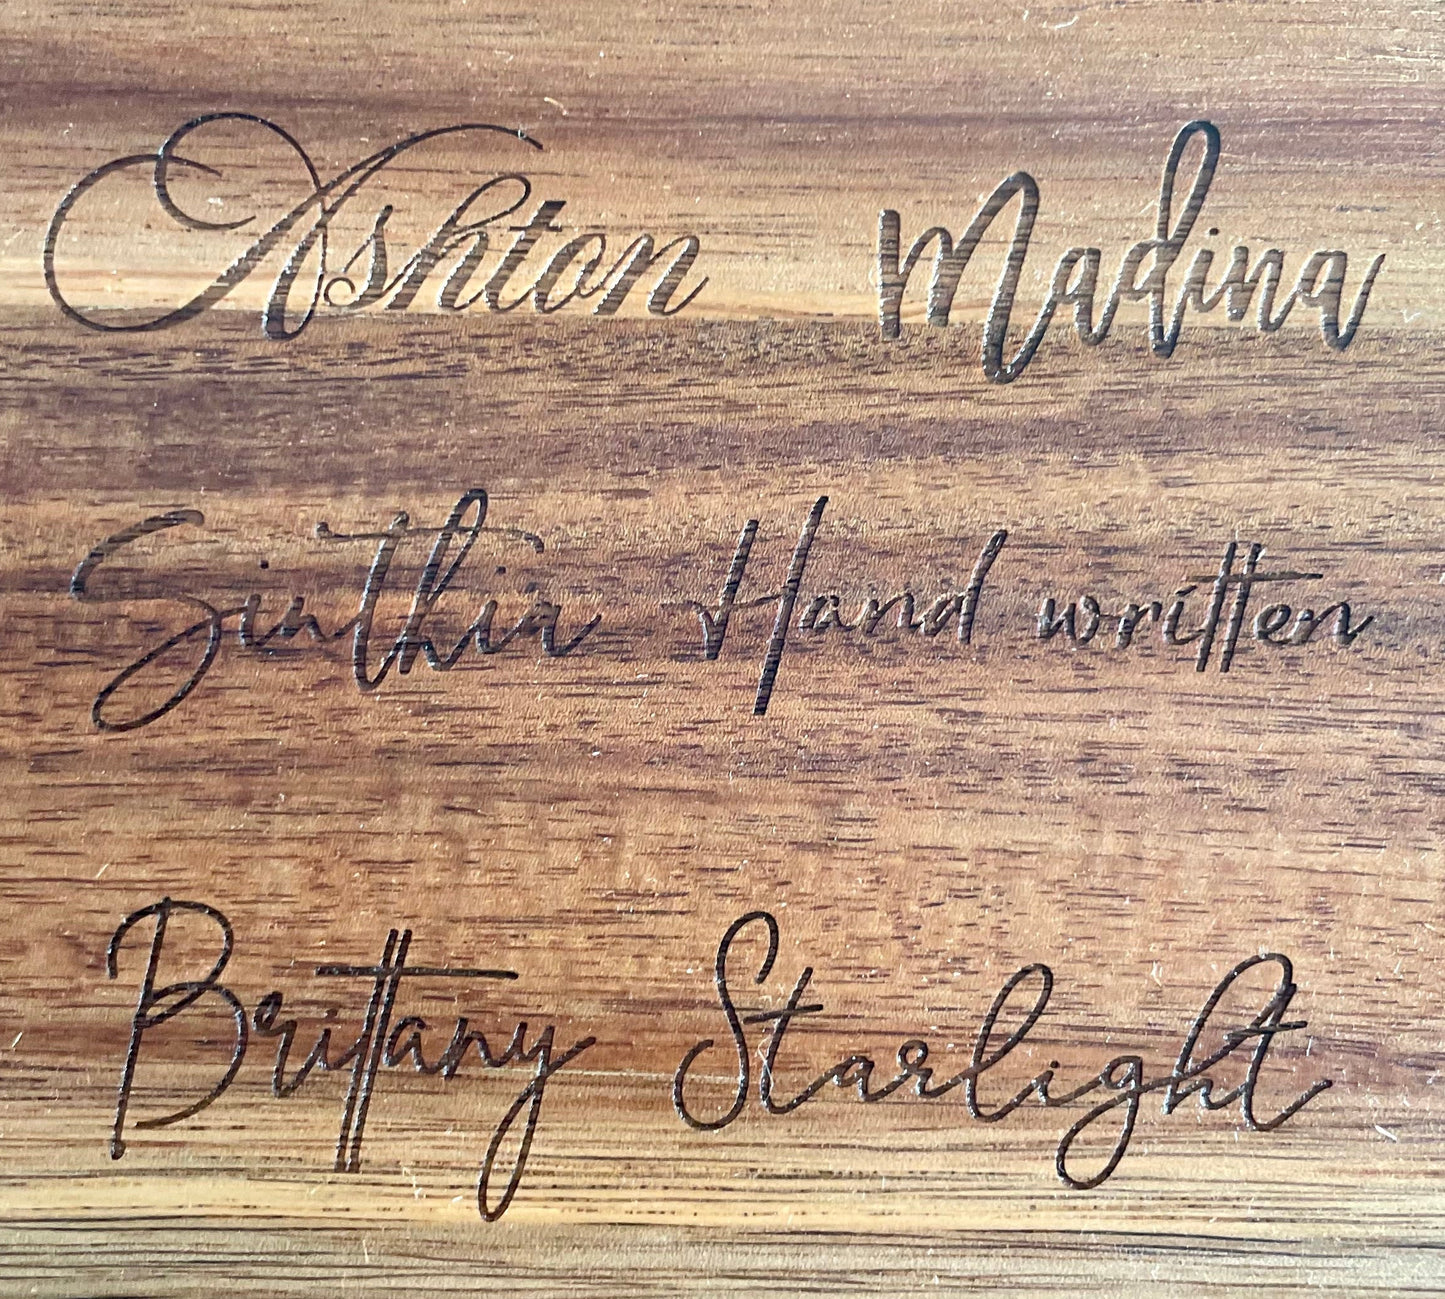 Ashton Madina
Sinthia Hand written
Brittany Starlight